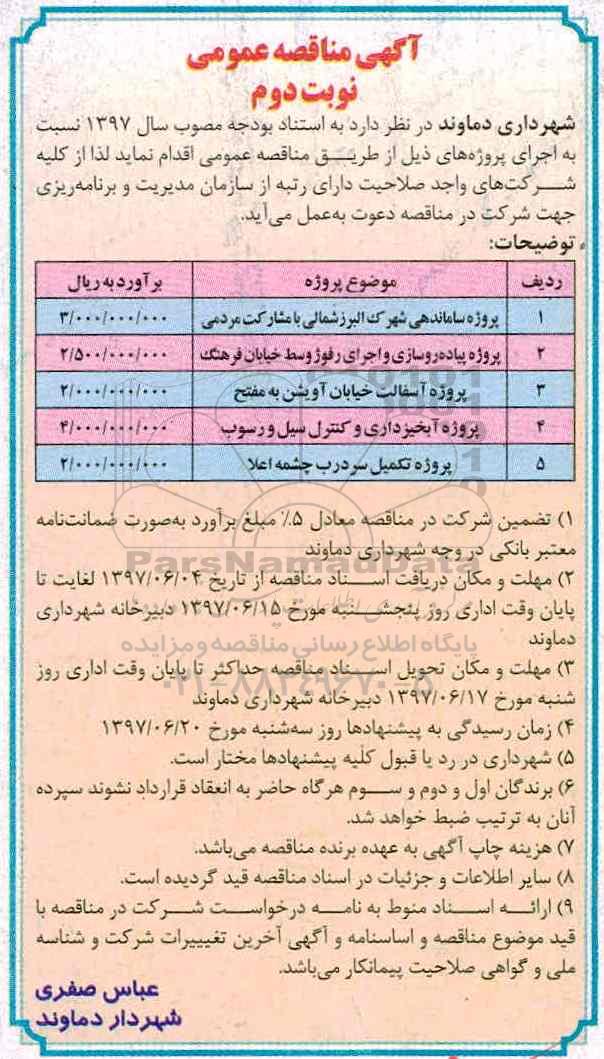 آگهی مناقصه عمومی
نوبت دوم
شهرداری دماوند در نظر دارد به استناد بودجه مصوب سال ۱۳۹۷ نسبت
به اجرای پروژه‌های ذیل از طریـــق مناقصه عمومی اقدام نماید لذا از کلیه
شـــرکت‌های واجد صلاحیت دارای رتبه از سازمان مدیریت و برنامه‌ریزی
جهت شرکت در مناقصه دعوت به‌عمل می‌آید.
توضیحات:
ردیف موضوع پروژه برآورد به ریال
۱ پروژه ساماندهی شهرک البرز شمالی با مشارکت مردمی ۳/۰۰۰/۰۰۰/۰۰۰
۲ پروژه پیاده‌روسازی و اجرای رفوژ وسط خیابان فرهنگ ۲/۵۰۰/۰۰۰/۰۰۰
۳ پروژه آسفالت خیابان آویشن به مفتح ۲/۰۰۰/۰۰۰/۰۰۰
۴ پروژه آبخیزداری و کنترل سیل و رسوب ۴/۰۰۰/۰۰۰/۰۰۰
۵ پروژه تکمیل سردرب چشمه اعلا ۲/۰۰۰/۰۰۰/۰۰۰
۱) تضمین شرکت در مناقصه معادل ۵٪ مبلغ برآورد به‌صورت ضمانت‌نامه
معتبر بانکی در وجه شهرداری دماوند
ParsNamadData
۲) مهلت و مکان دریافت اســـناد مناقصه از تاریخ ۱۳۹۷/۰۶/۰۴ لغایت تا
پایان وقت اداری روز پنجشـــنبه مورخ ۱۳۹۷/۰۶/۱۵ دبیرخانه شهرداری
دماوند
پایگاه اطلاع رسانی مناقصه و مزایده
۳) مهلت و مکان تحویل اســـناد مناقصه حداکثر تا پایان وقت اداری روز
شنبه مورخ ۱۳۹۷/۰۶/۱۷ دبیرخانه شهرداری دماوند
۰۲۱-۸۸۳۴۹۶۷۰-۵
۴) زمان رسیدگی به پیشنهادها روز سه‌شنبه مورخ ۱۳۹۷/۰۶/۲۰
۵) شهرداری در رد یا قبول کلیه پیشنهادها مختار است.
۶) برندگان اول و دوم و ســـوم هرگاه حاضر به انعقاد قرارداد نشوند سپرده
آنان به ترتیب ضبط خواهد شد.
۷) هزینه چاپ آگهی به عهده برنده مناقصه می‌باشد.
۸) سایر اطلاعات و جزئیات در اسناد مناقصه قید گردیده است.
۹) ارائـــه اســـناد منوط به نامـــه درخواســـت شـــرکت در مناقصه با
قید موضوع مناقصه و اساسنامه و آگهی آخرین تغییرات شرکت و شناسه
ملی و گواهی صلاحیت پیمانکار می‌باشد.
عباس صفری
شهردار دماوند